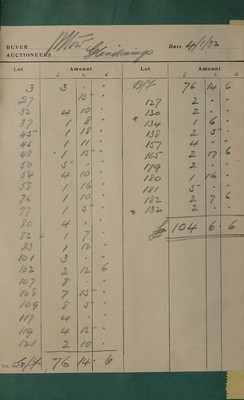 BUYER
AUCTIONEERS Glendinings
Date 4/1/32
Lot Amount Lot Amount
£ s. d. £ s. d.
3 3 - -
27 15 -
32 4 10 -
37 1 8 -
45 1 18 -
46 1 11 -
48 1 15 -
50 5 - -
54 4 10 -
58 1 16 -
76 1 10 -
77 1 5 -
80 4 - -
82 1 7 -
83 1 12 -
101 3 - -
102 2 12 6
107 8 - -
108 7 15 -
109 8 5 -
117 4 - -
119 4 15 -
121 2 10 -
C/f 76 14 6
B/f 76 14 6
127 2 - -
130 2 - -
* 134 1 6 -
138 2 5 -
157 4 - -
165 2 17 6
179 2 - -
180 1 16 -
181 5 - -
182 2 7 6
* 132 2 - -
£ 104 6 6